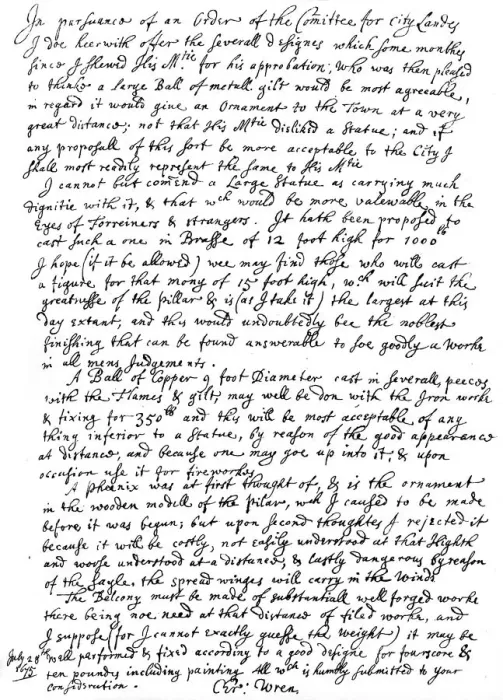 In pursuance of an Order of the Comittee for City Landes
I doe heerwith offer the severall designes which some monthes
since I shewed His Mtie for his approbation, who was then pleased
to thinke a large Ball of metall gilt would be most agreeable,
in regard it would give an Ornament to the Town at a very
great distance; not that His Mtie disliked a Statue; and if
any proposall of this sort be more acceptable to the City I
shall most readily represent the same to His Mtie
I cannot but comend a Large Statue as carrying much
dignitie with it, & that wch would be more valewable in the
Eyes of Forreiners & strangers. It hath been proposed to
cast such a one in Brasse of 12 foot high for 1000lb
I hope (if it be allowed) wee may find those who will cast
a figure for that mony of 15 foot high, wch will suit the
greatnesse of the pillar & is (as I take it) the largest at this
day extant, and this would undoubtedly bee the noblest
finishing that can be found answerable to soe goodly a worke
in all mens Judgements.
A Ball of Copper 9 foot Diameter cast in severall peeces
with the Flames & gilt, may well be don with the Iron worke
& fixing for 350lb and this will be most acceptable of any
thing inferior to a Statue, by reason of the good appearance
at distance, and because one may goe up into it, & upon
occasion use it for fireworkes.
A Phœnix was at first thought of, & is the ornament
in the wooden modell of the pilar, wch I caused to be made
before it was begun; but upon second thoughtes I rejected it
because it will be costly, not easily understood at that Highth
and worse understood at a distance, & lastly dangerous by reason
of the sayle, the spread winges will carry in the winde
The Belcony must be made of substantiall well forged worke
there being noe need at that distance of filed worke, and
I suppose (for I cannot exactly guesse the weight) it may be
well performed & fixed according to a good designe for fourscore &
ten poundes including painting All wch is humbly submitted to your
consideration.
July 28th
1675
Chr: Wren